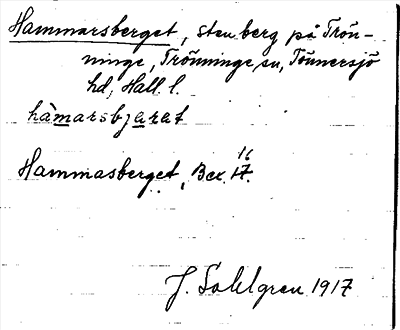 Hammarsberget, stenberg på Trön-
ninge, Trönninge sn, Tönnersjö
hd, Hall. l.
hàmarsbjærat
Hammasberget, Bex. 17. 16
J. Sahlgren 1917